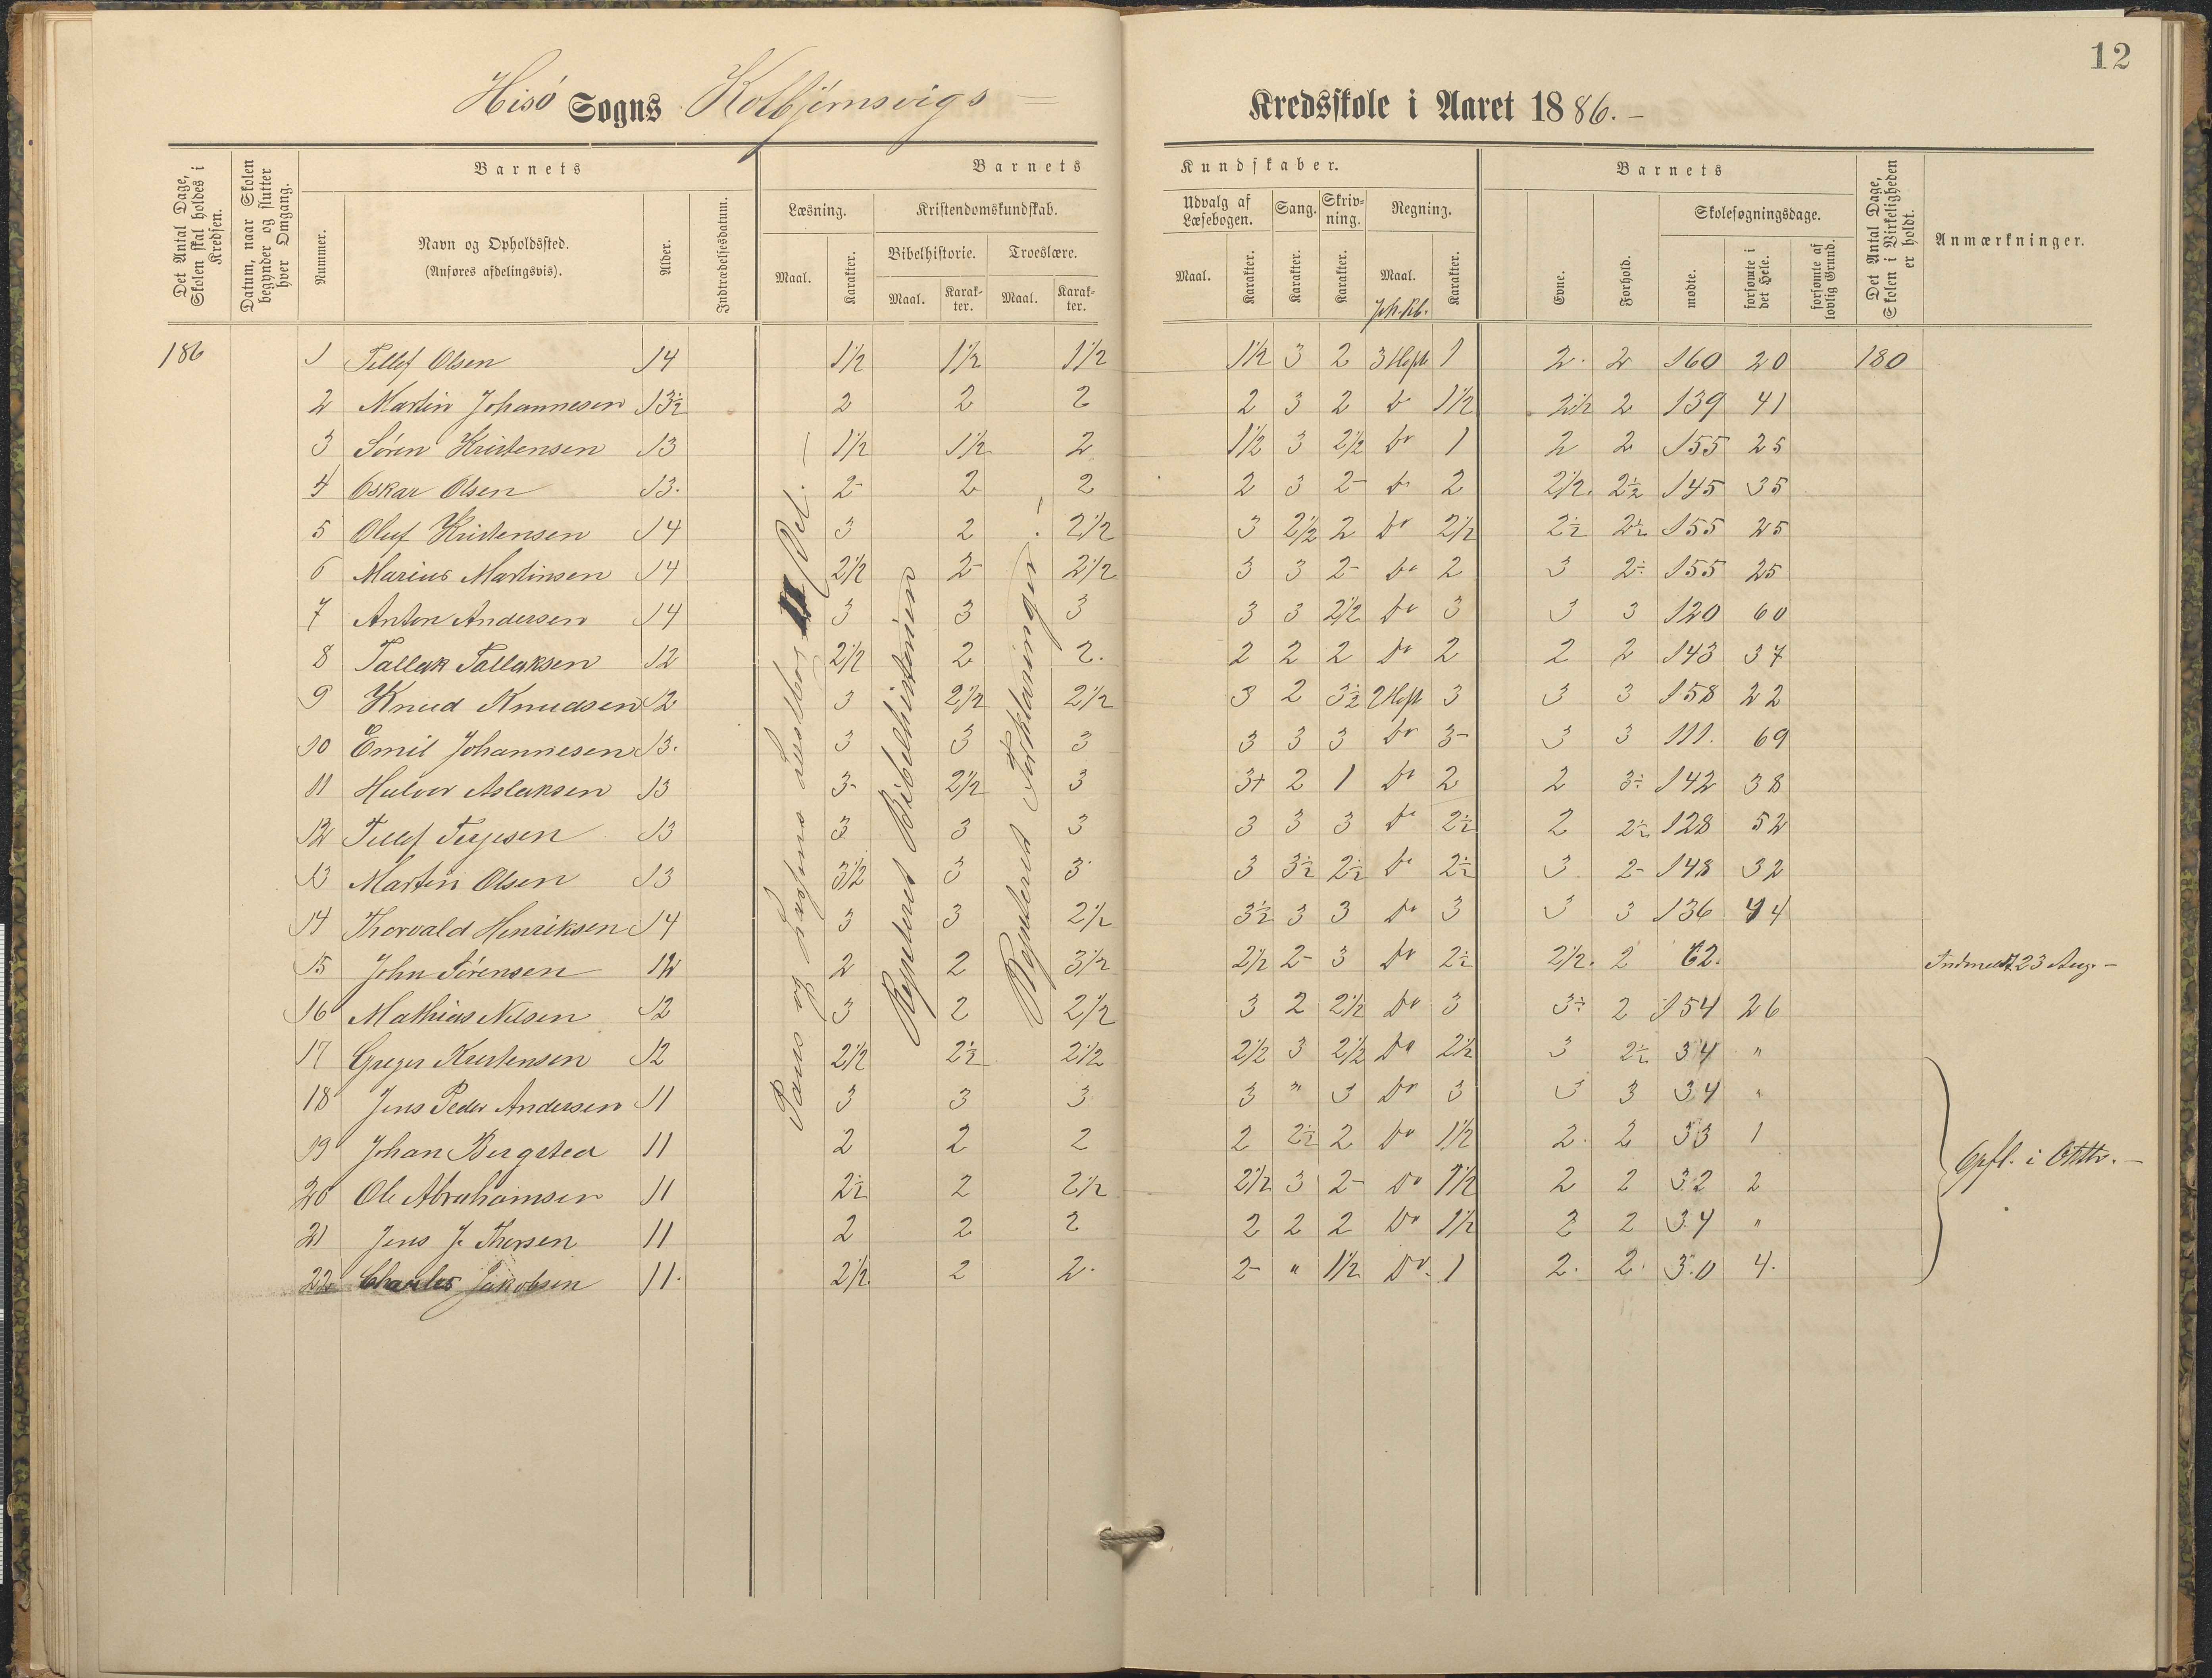 12
Hisö Sogns Kolbjörnsvigs — Kredsskole i Aaret 1886. –
Det Antal Dage, Skolen skal holdes i Kredsen.
Datum, naar Skolen begynder og slutter hver Omgang.
Barnets
Nummer.
Navn og Opholdssted.
(Anføres afdelingsvis).
Alder.
Indtrædelsesdatum.
Barnets Kundskaber.
Læsning.
Maal.
Karakter.
Kristendomskundskab.
Bibelhistorie.
Maal.
Karak-ter.
Troeslære.
Maal.
Karak-ter.
Udvalg af Læsebogen.
Maal.
Karakter.
Sang.
Karakter.
Skriv-ning.
Karakter.
Regning.
Maal.
Karakter.
Barnets
Evne.
Forhold.
Skolesøgningsdage.
mødte.
forsømte i det Hele.
forsømte af lovlig Grund.
Det Antal Dage, Skolen i Virkeligheden er holdt.
Anmærkninger.
186 1 Tellef Olsen 14 1½ 1½ 1½ 1½ 3 2 3 Heft 1 2. 2 160 20 180
2 Martin Johannesen 13½ 2 2 2 2 3 2 Do 1½ 2½ 2 139 41
3 Sören Kristensen 13 1½ 1½ 2 1½ 3 2½ Do 1 2 2 155 25
4 Oskar Olsen 13. 2- 2 2 2 3 2- Do 2 2½. 2½ 145 35
5 Oluf Kristensen 14 3 2 2½ 3 2½ 2 Do 2½ 2½ 2½ 155 25
6 Marius Martinsen 14 2½ 2- 2½ 3 3 2- Do 2 3 2÷ 155 25
7 Anton Andersen 14 3 3 3 3 3 2½ Do 3 3 3 120 60
8 Tallak Tallaksen 12 2½ 2 2. 2 2 2 Do 2 2 2 143 37
9 Knud Knudsen 12 3 2½ 2½ 3 2 3½ 2 Heft 3 3 3 158 22
10 Emil Johannesen 13. 3 3 3 3 3 3 Do 3- 3 3 111. 69
11 Halvor Aslaksen 13 3- 2½ 3 3+ 2 1 Do 2 2 3÷ 142 38
12 Tellef Terjesen 13 3 3 3 3 3 3 Do 2½ 2 2½ 128 52
13 Martin Olsen 13 3½ 3 3 3 3½ 2½ Do 2½ 3 2- 148 32
14 Thorvald Henriksen 14 3 3 2½ 3½ 3 3 Do 3 3 3 136 44
15 John Sörensen 12 2 2 3½ 2½ 2- 3 Do 2½ 2½. 2 62. Indmeldt 23 Aug. –
16 Mathias Nilsen 12 3 2 2½ 3 2 2½ Do 3 3÷ 2 154 26
17 Greger Kristensen 12 2½ 2½ 2½ 2½ 3 2½ Do 2½ 3 2½ 34 "
18 Jens Peder Andersen 11 3 3 3 3 " 3 Do 3 3 3 34 "
19 Johan Bergsted 11 2 2 2 2 2½ 2 Do 1½ 2. 2 33 1
20 Ole Abrahamsen 11 2½ 2 2½ 2½ 3 2- Do 1½ 2 2 32 2
21 Jens J. Thorsen 11 2 2 2 2 2 2 Do 1½ 2 2 34 "
22 Charles Jakobsen 11. 2½ 2 2. 2- " 1½ Do. 1 2. 2. 30 4.
Opfl. i Oktbr. –
og Jensens Læsebog II Del. –
Repeteret Bibelhistorien
Repeteret Forklaringen. –